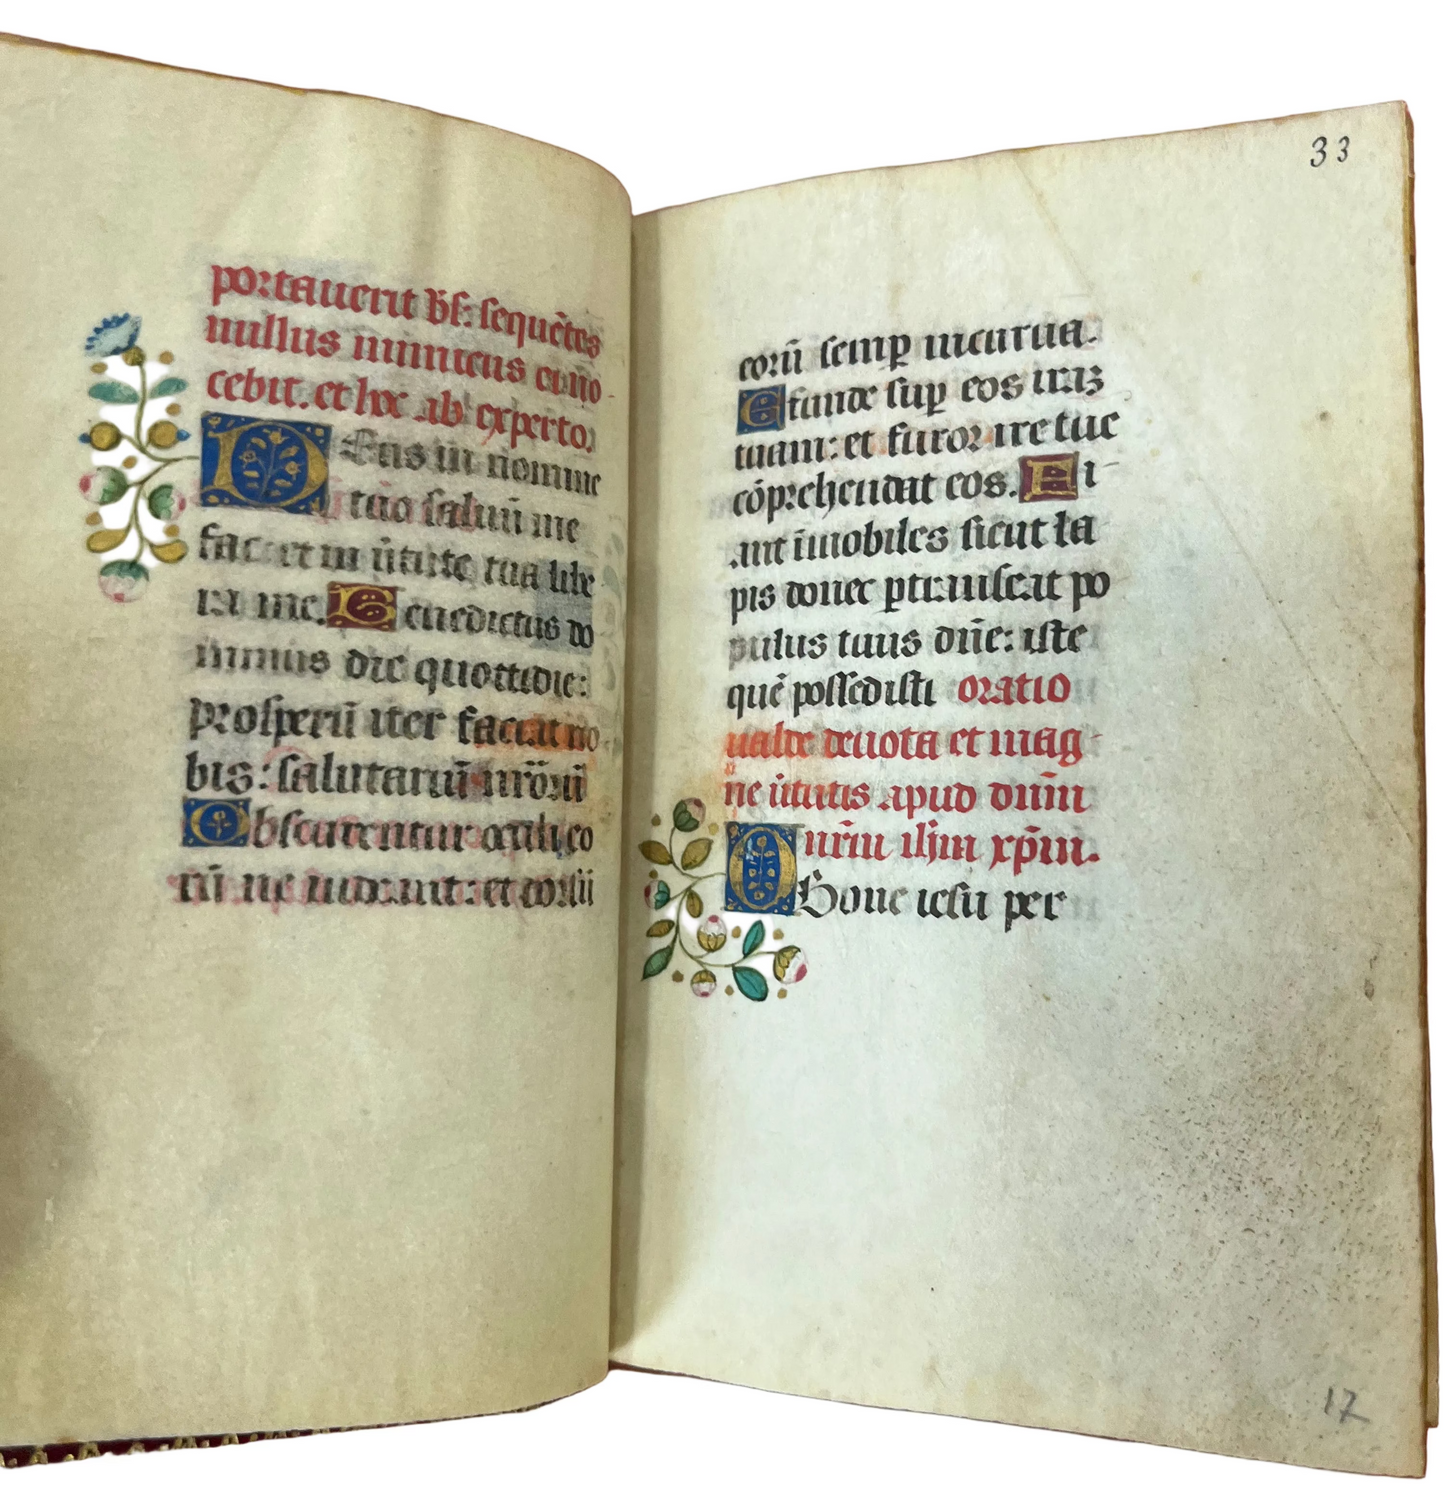 portauerit vs̄: sequētes
nullus inimicus ei no
cebit. et hoc ab experto.
Deus in nomine
tuo saluū me
fac: et in ūtute tua libe
ra me. Benedictus do
minus die quottidie:
prosperū iter faciat no
bis: salutariū nr̄orū
Obscurentur oculi eo
rū ne uideant: et dorsū
33
eorū semꝑ incurua.
Effunde suꝑ eos iraꝫ
tuam: et furor ire tue
cōprehendat eos. Fi
ant īmobiles sicut la
pis donec ꝑtranseat po
pulus tuus dn̄e: iste
quē possedisti oratio
valde deuota et mag
ne ūtutis apud dn̄m
nr̄m ih̄m xp̄m.
O Bone iesu per
17